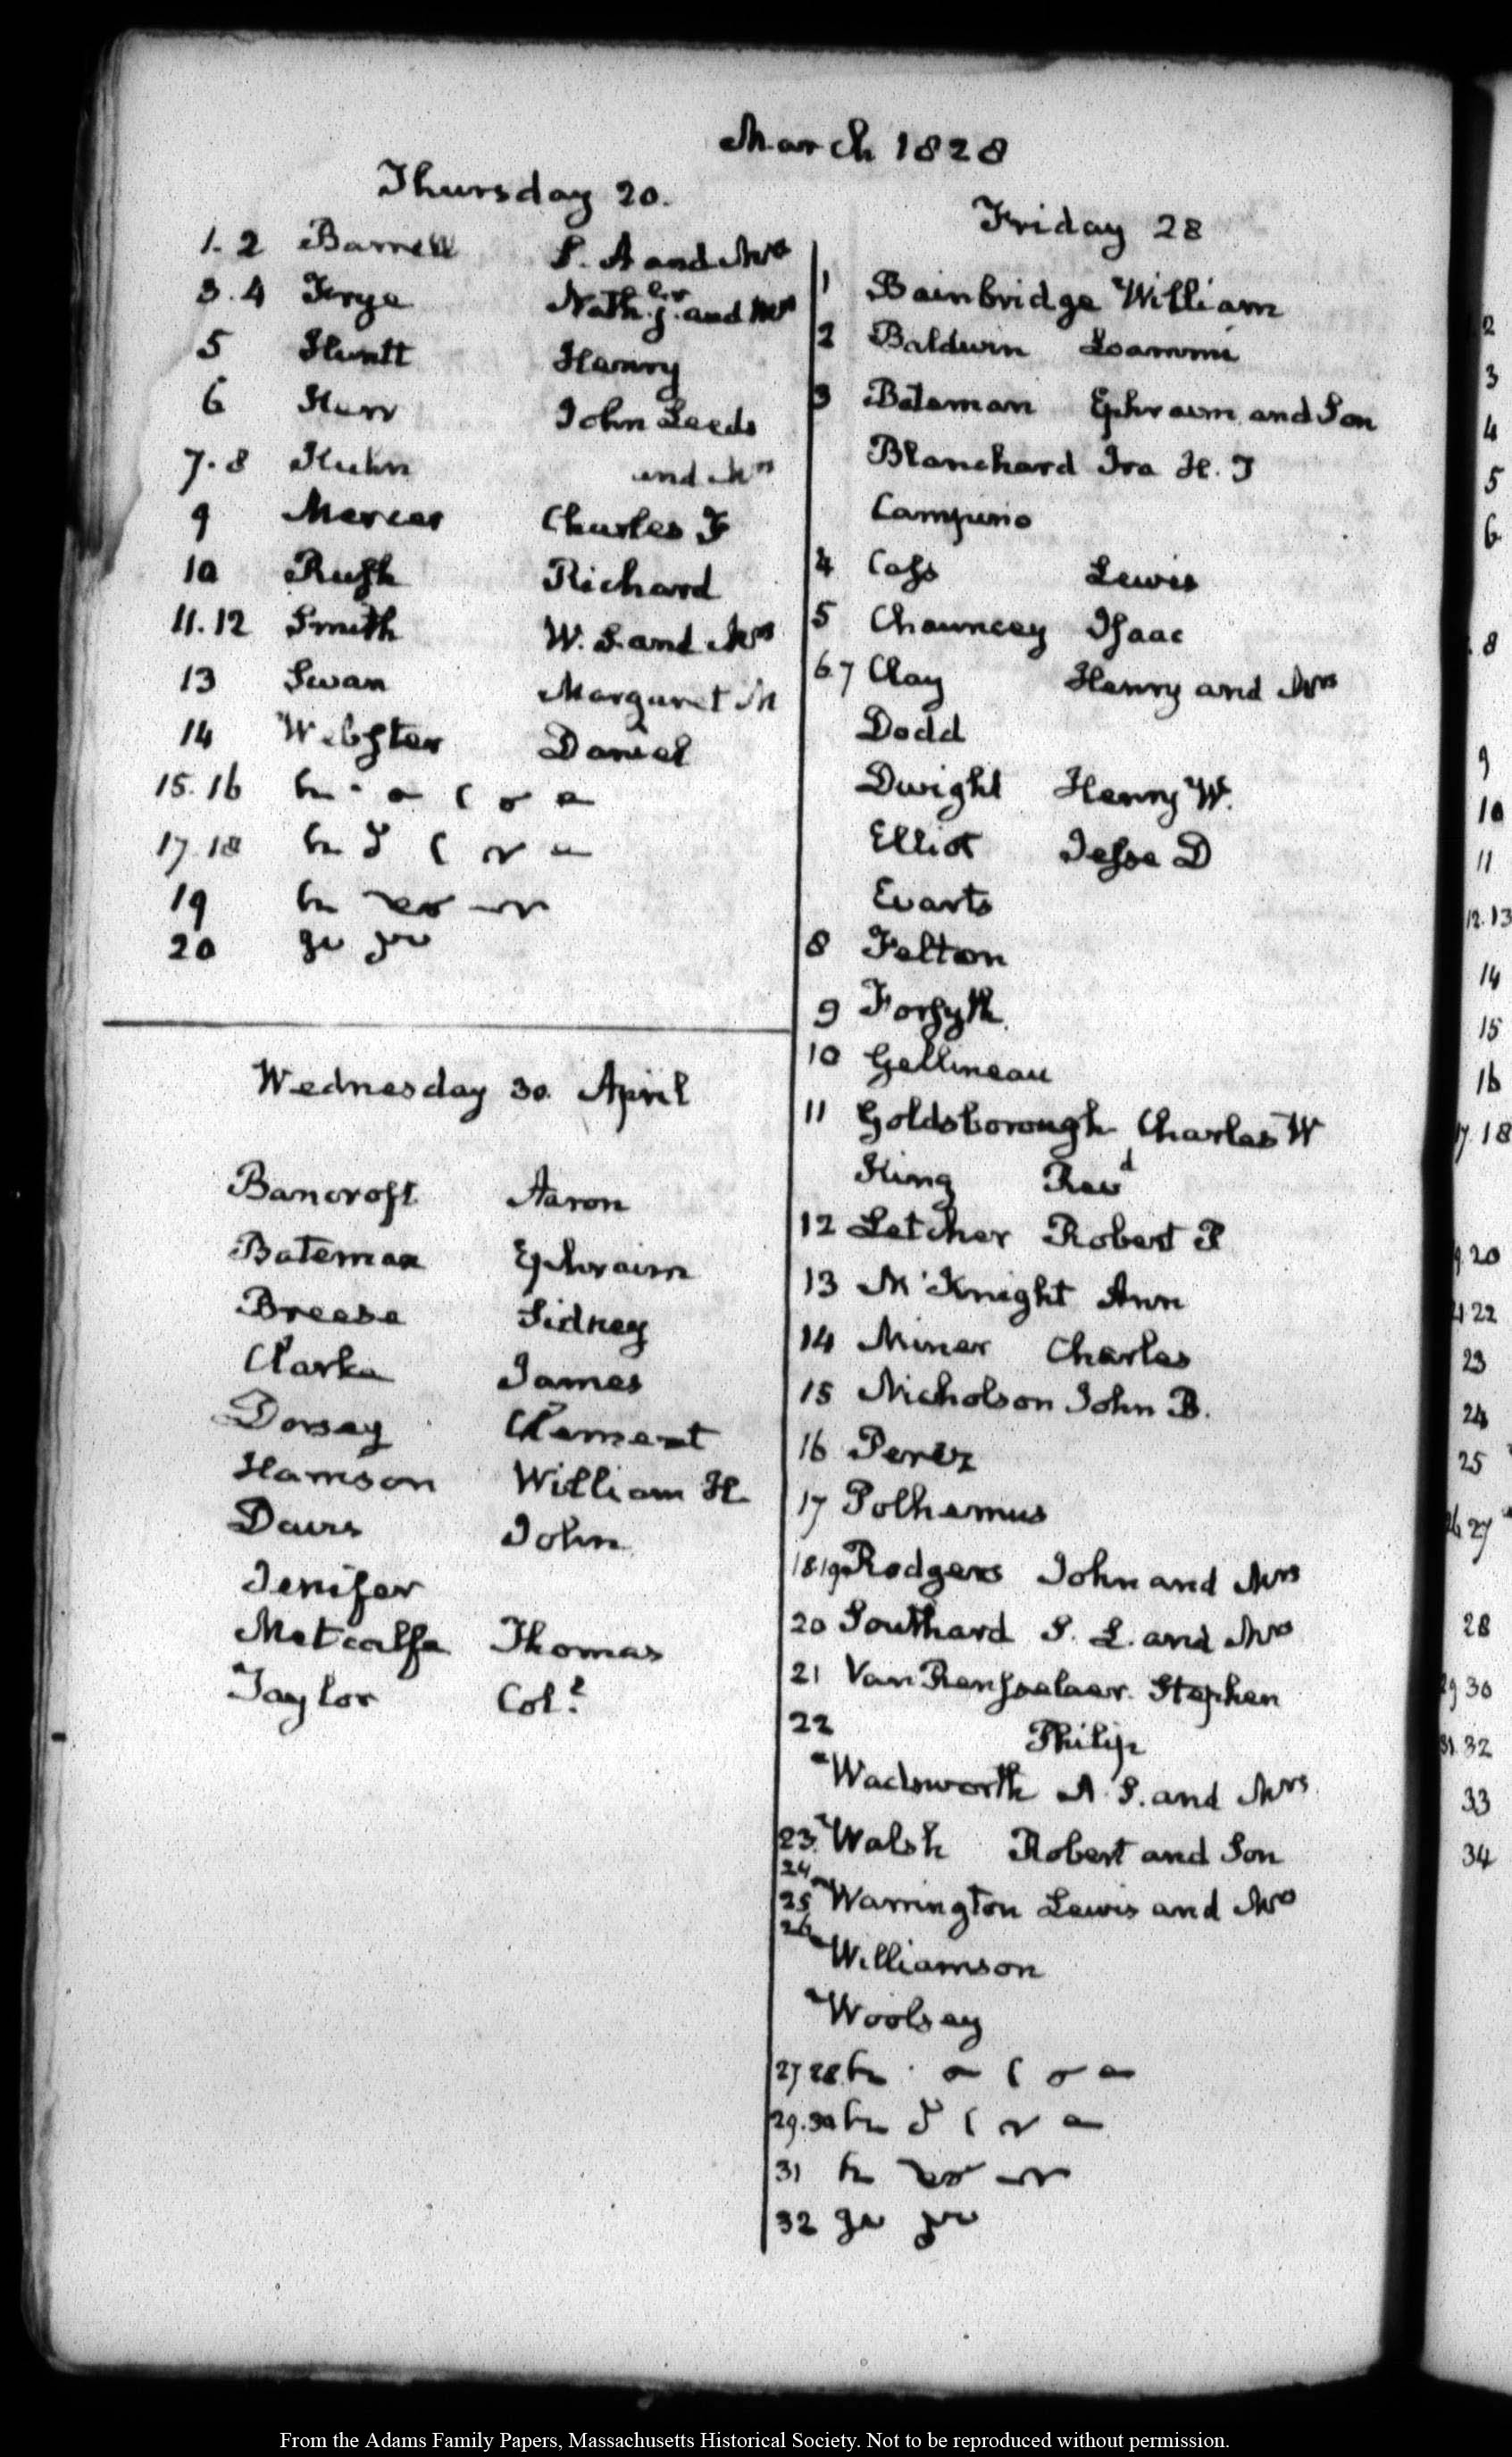 March 1828
Thursday 20.
1. 2 Barrell S. A and Mrs
3. 4 Frye Nathl. jr. and Mrs
5 Huntt Henry
6 Kerr John Leeds
7. 8 Kuhn and Mrs
9 Mercer Charles F
10 Rush Richard
11. 12 Smith W. S. and Mrs
13 Swan Margaret M
14 Webster Daniel
15. 16
17 18
19
20
Wednesday 30. April
Bancroft Aaron
Bateman Ephraim
Breese Sidney
Clarke James
Dorsey Clement
Harrison William H.
Davis John
Jenifer
Metcalfe Thomas
Taylor Coll.
Friday 28
1 Bainbridge William
2 Baldwin Loammi
3 Bateman Ephraim and Son
Blanchard Ira H. T
Campino
4 Cass Lewis
5 Chauncey Isaac
6 7 Clay Henry and Mrs
Dodd
Dwight Henry W.
Elliot Jesse D
Evarts
8 Felton
9 Forsyth
10 Gellineau
11 Goldsborough Charles W
King Revd
12 Letcher Robert P
13 M'Knight Ann
14 Miner Charles
15 Nicholson John B.
16 Perez
17 Polhemus
18 19 Rodgers John and Mrs
20 Southard S. L. and Mrs
21 Van Rensselaer. Stephen
22 Philip
Wadsworth A. S. and Mrs
23. Walsh Robert and Son
24
25 Warrington Lewis and Mrs
26
Williamson
Woolsey
27 28
29. 30
31
32
2
3
4
5
6
8
9
10
11
12. 13
14
15
16
17. 18
20
22
23
24
25
26 27
28
29 30
31. 32
33
34
From the Adams Family Papers, Massachusetts Historical Society. Not to be reproduced without permission.